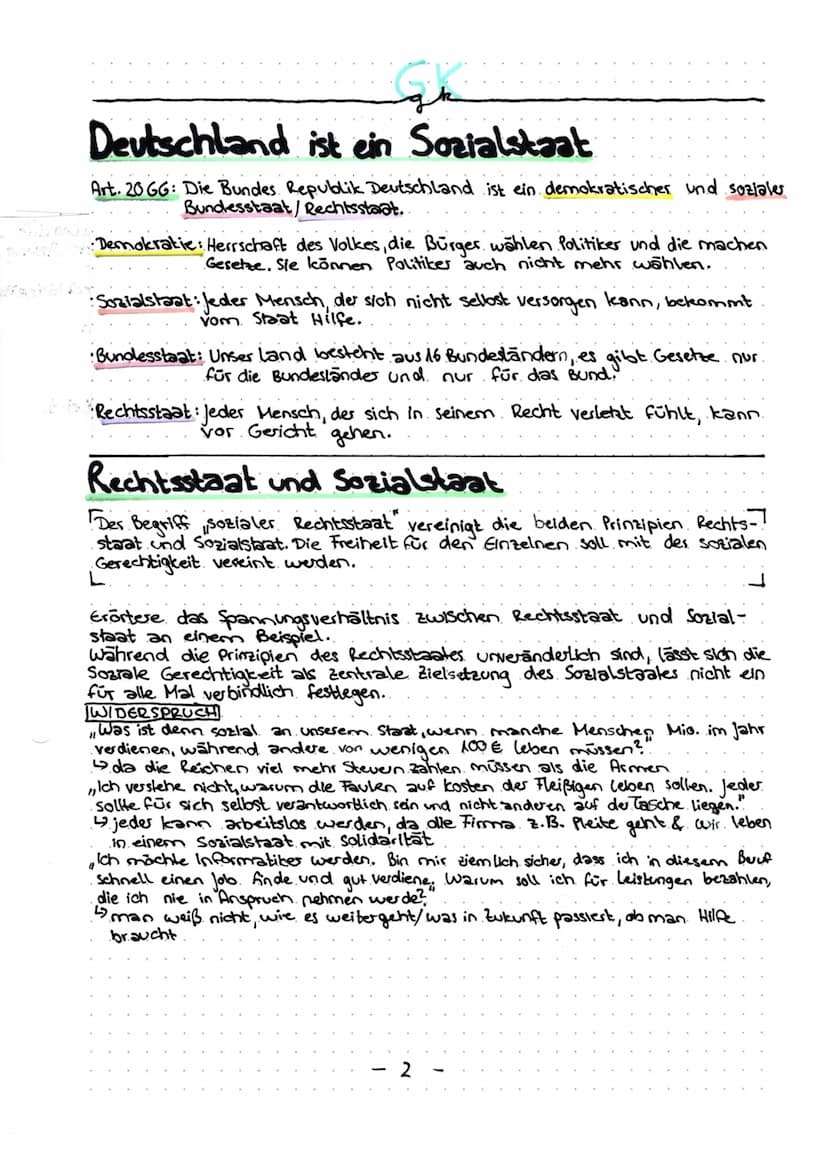 GK
gk
Deutschland ist ein Sozialstaat
Art. 20 GG: Die Bundes Republik Deutschland ist ein demokratischer und sozialer
Bundesstaat/Rechtsstaat.
·Demokratie: Herrschaft des Volkes, die Bürger wählen Politiker und die machen
Gesetze. Sie können Politiker auch nicht mehr wählen.
·Sozialstaat: Jeder Mensch, der sich nicht selbst versorgen kann, bekommt
vom Staat Hilfe.
·Bundesstaat: Unser Land besteht aus 16 Bundesländern, es gibt Gesetze nur
für die Bundesländer und nur für das Bund.
·Rechtsstaat: Jeder Mensch, der sich in seinem Recht verletzt fühlt, kann
vor Gericht gehen.
Rechtsstaat und Sozialstaat
Der Begriff „sozialer Rechtsstaat" vereinigt die beiden Prinzipien Rechts-
staat und Sozialstaat. Die Freiheit für den Einzelnen soll mit der sozialen
Gerechtigkeit vereint werden.
Erörtere das Spannungsverhältnis zwischen Rechtsstaat und Sozial-
staat an einem Beispiel.
Während die Prinzipien des Rechtsstaates unveränderlich sind, lässt sich die
Soziale Gerechtigkeit als zentrale Zielsetzung des Sozialstaates nicht ein
für alle Mal verbindlich festlegen.
WIDERSPRUCH
„Was ist denn sozial an unserem Staat, wenn manche Menschen Mio. im Jahr
verdienen, während andere von wenigen 100€ leben müssen?"
↳ da die Reichen viel mehr Steuern zahlen müssen als die Armen
„Ich verstehe nicht, warum die Faulen auf kosten der Fleißigen leben sollen. Jeder
sollte für sich selbst verantwortlich sein und nicht anderen auf der Tasche liegen."
↳ jeder kann arbeitslos werden, da die Firma z.B. Pleite geht & wir leben
in einem Sozialstaat mit Solidarität
„Ich möchte Informatiker werden. Bin mir ziemlich sicher, dass ich in diesem Beruf
schnell einen Job finde und gut verdiene. Warum soll ich für Leistungen bezahlen,
die ich nie in Anspruch nehmen werde?"
↳ man weiß nicht, wie es weitergeht/was in Zukunft passiert, ob man Hilfe
braucht
- 2 -